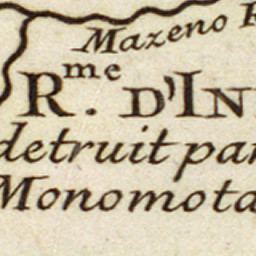 Mazeno R
R.me D'In
detruit par
Monomota